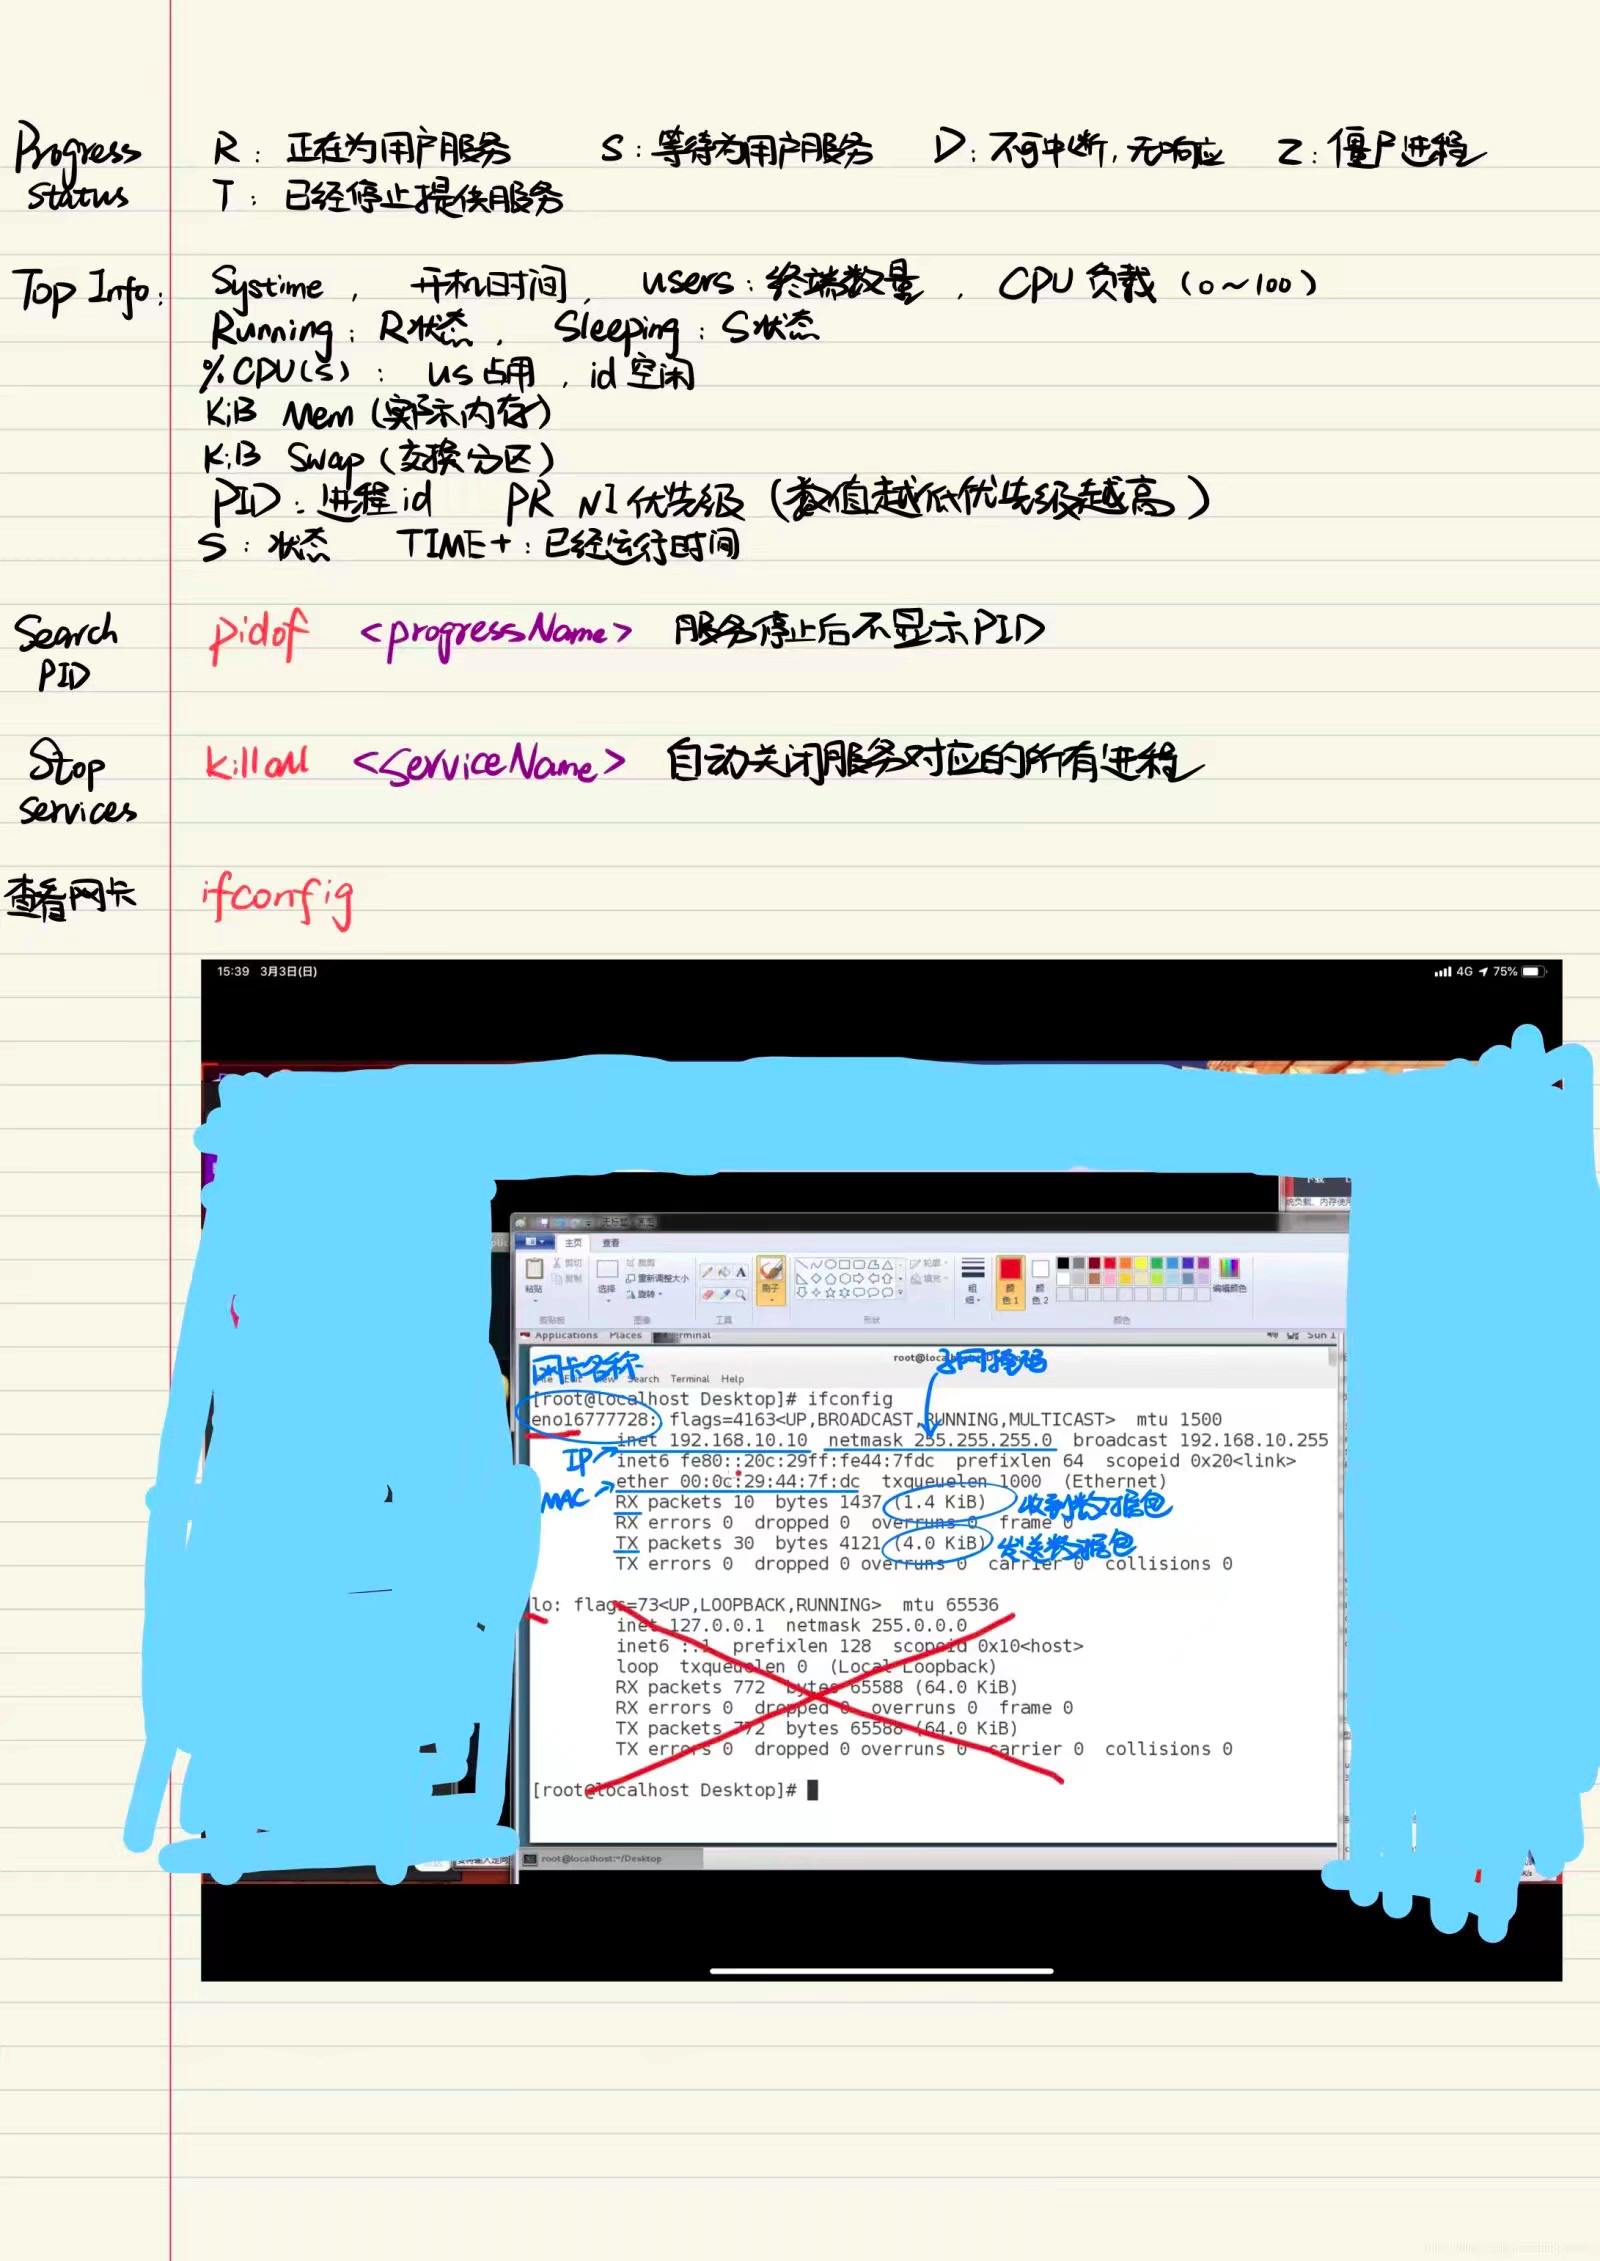 Progress Status
R: 正在为用户服务 S: 等待为用户服务 D: 不可中断,无响应 Z: 僵尸进程
T: 已经停止提供服务
Top Info: Systime, 开机时间, users: 终端数量, CPU 负载 (0~100)
Running: R状态, Sleeping: S状态
%CPU(s): us占用, id空闲
KiB Mem (实际内存)
KiB Swap (交换分区)
PID: 进程id PR NI 优先级 (数值越低优先级越高)
S: 状态 TIME+: 已经运行时间
Search PID
pidof <progressName> 服务停止后不显示PID
Stop Services
killall <serviceName> 自动关闭服务对应的所有进程
查看网卡 ifconfig
15:39 3月3日(日) 4G 75%
下载
统负载、内存使用
主页 查看
粘贴 剪切 复制 选择 裁剪 重新调整大小 旋转 刷子 轮廓 填充 粗细 颜色1 颜色2 编辑颜色
剪贴板 图像 工具 形状 颜色
Applications Places Sun 1
网卡名称 子网掩码
Search Terminal Help
[root@localhost Desktop]# ifconfig
eno16777728: flags=4163<UP,BROADCAST,RUNNING,MULTICAST> mtu 1500
inet 192.168.10.10 netmask 255.255.255.0 broadcast 192.168.10.255
IP
inet6 fe80::20c:29ff:fe44:7fdc prefixlen 64 scopeid 0x20<link>
ether 00:0c:29:44:7f:dc txqueuelen 1000 (Ethernet)
MAC
RX packets 10 bytes 1437 (1.4 KiB) 收到数据包
RX errors 0 dropped 0 overruns 0 frame 0
TX packets 30 bytes 4121 (4.0 KiB) 发送数据包
TX errors 0 dropped 0 overruns 0 carrier 0 collisions 0
lo: flags=73<UP,LOOPBACK,RUNNING> mtu 65536
inet 127.0.0.1 netmask 255.0.0.0
inet6 ::1 prefixlen 128 scopeid 0x10<host>
loop txqueuelen 0 (Local Loopback)
RX packets 772 bytes 65588 (64.0 KiB)
RX errors 0 dropped 0 overruns 0 frame 0
TX packets 772 bytes 65588 (64.0 KiB)
TX errors 0 dropped 0 overruns 0 carrier 0 collisions 0
[root@localhost Desktop]#
root@localhost:~/Desktop